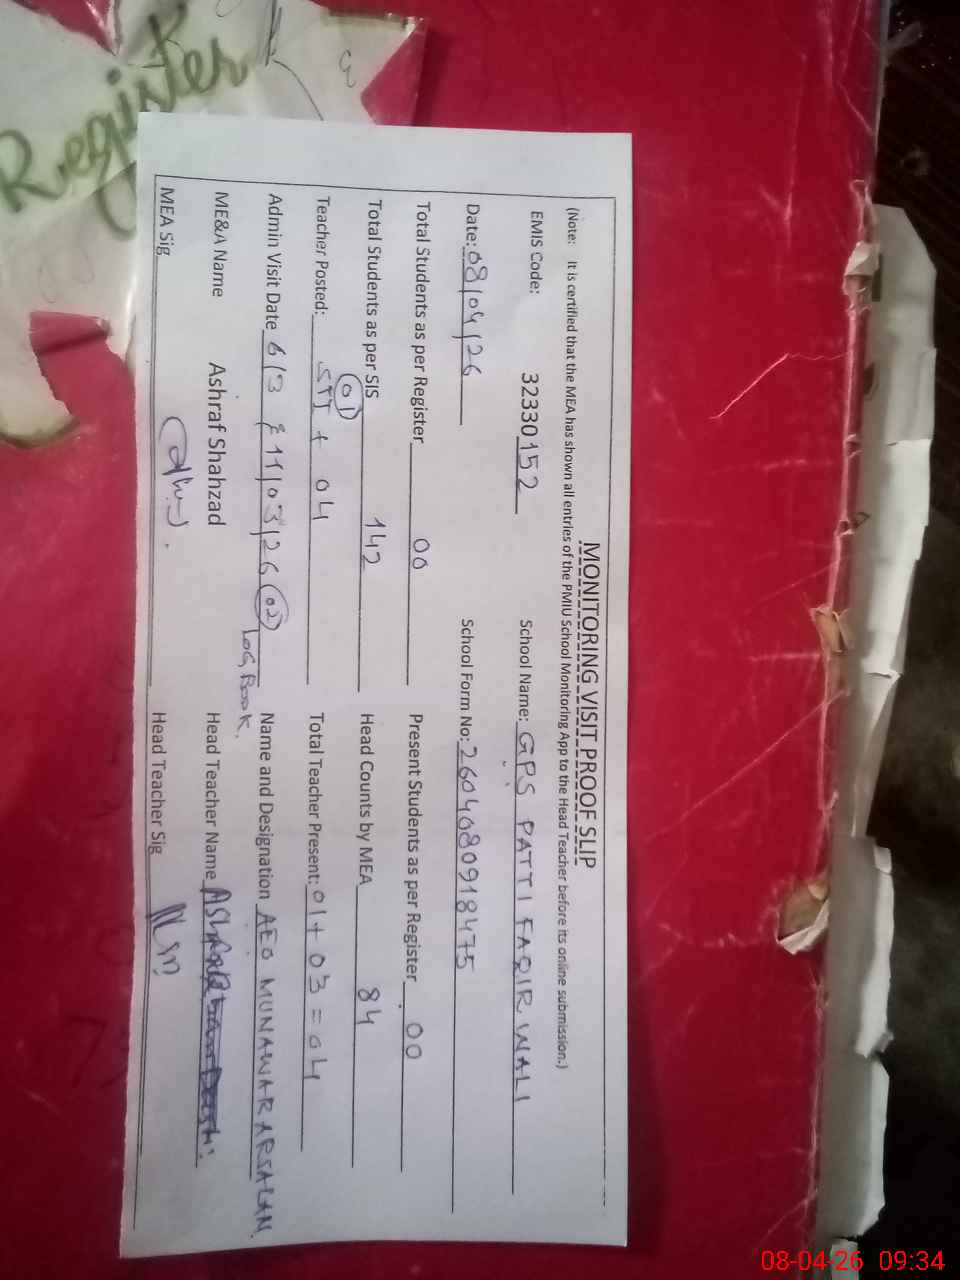 Register
MONITORING VISIT PROOF SLIP
(Note: It is certified that the MEA has shown all entries of the PMIU School Monitoring App to the Head Teacher before its online submission.)
EMIS Code: 32330152 School Name: GPS PATTI FAQIR WALI
Date: 08/04/26 School Form No: 260408091 8475
Total Students as per Register 00 Present Students as per Register 00
Total Students as per SIS 142 Head Counts by MEA 84
Teacher Posted: 01 STI + 04 Total Teacher Present: 01 + 03 = 04
Admin Visit Date 6/3 & 11/03/26 02 LOG BOOK. Name and Designation AEO MUNAWAR ARSALAN
ME&A Name Ashraf Shahzad Head Teacher Name
MEA Sig Head Teacher Sig
08-04-26 09:34